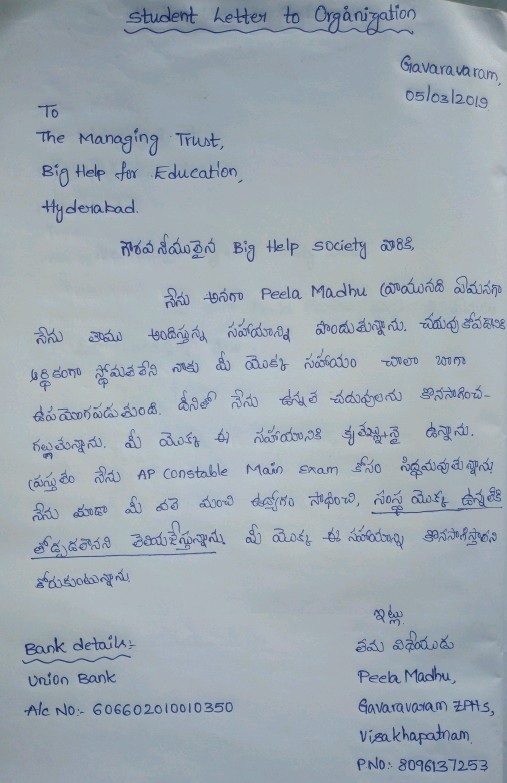 Student Letter to Organization
Gavaravaram,
05/03/2019
To
The Managing Trust,
Big Help for Education,
Hyderabad.
గౌరవనీయులైన Big Help society వారికి,
నేను అనగా Peela Madhu వ్రాయునది ఏమనగా
నేను తాము అందిస్తున్న సహాయాన్ని పొందుతున్నాను. చదువుకోవడానికి
ఆర్థికంగా స్థోమతలేని నాకు మీ యొక్క సహాయం చాలా బాగా
ఉపయోగపడుతుంది. దీనితో నేను ఉన్నత చదువులను కొనసాగించ-
గల్గుతున్నాను. మీ యొక్క ఈ సహాయానికి కృతజ్ఞునై ఉన్నాను.
ప్రస్తుతం నేను AP Constable Main Exam కోసం సిద్ధమవుతున్నాను
నేను కూడా మీ వలె మంచి ఉద్యోగం సాధించి, సంస్థ యొక్క ఉన్నతికి
తోడ్పడతానని తెలియచేస్తున్నాను. మీ యొక్క ఈ సహాయాన్ని కొనసాగిస్తారని
కోరుకుంటున్నాను.
ఇట్లు
తమ విధేయుడు
Peela Madhu,
Gavaravaram ZPHS,
Visakhapatnam.
P.NO:- 8096137253
Bank details:-
Union Bank
A/c NO:- 606602010010350